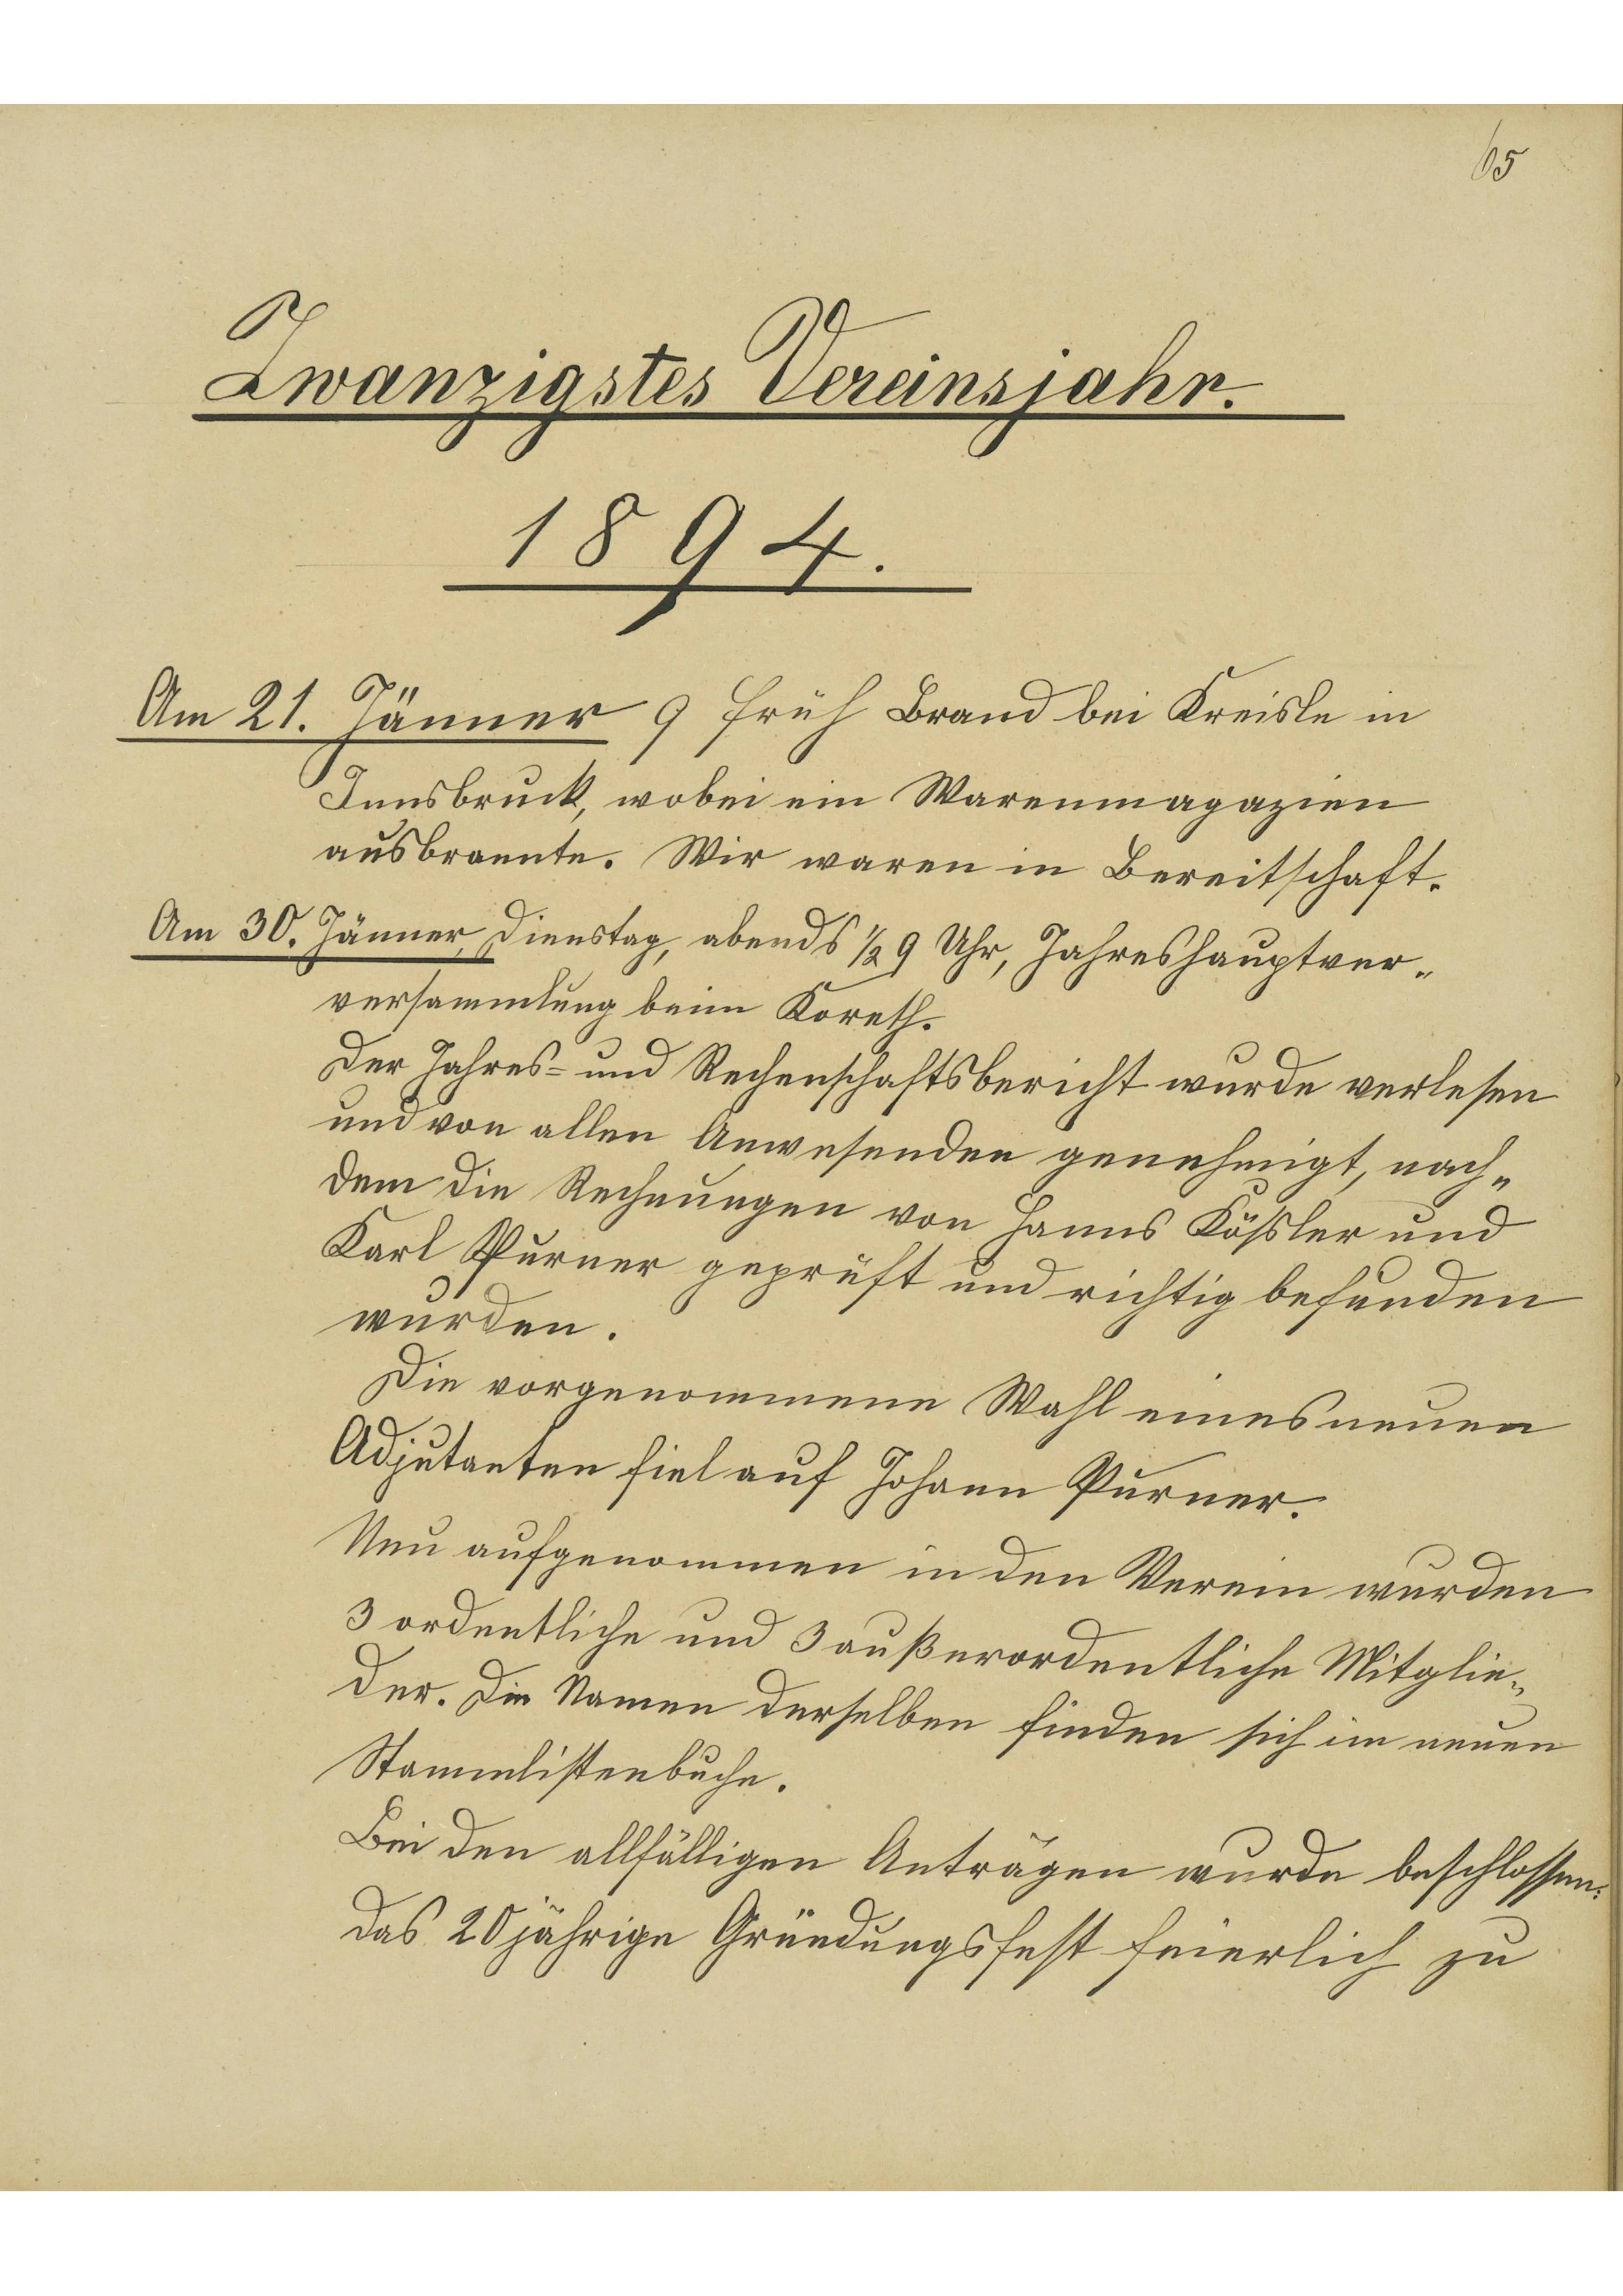 65
Zwanzigstes Vereinsjahr.
1894.
Am 21. Jänner 9 früh Brand bei Kreisle in
Innsbruck, wobei ein Warenmagazien
ausbrannte. Wir waren in Bereitschaft.
Am 30. Jänner, Dienstag, abends ½ 9 Uhr, Jahreshauptver„
versammlung beim Koreth.
Der Jahres= und Rechenschaftsbericht wurde verlesen
und von allen Anwesenden genehmigt, nach„
dem die Rechnungen von Hanns Kößler und
Karl Purner geprüft und richtig befunden
wurden.
Die vorgenommene Wahl eines neuen
Adjutanten fiel auf Johann Purner.
Neu aufgenommen in den Verein wurden
3 ordentliche und 3 außerordentliche Mitglie„
der. Die Namen derselben finden sich im neuen
Stammlistenbuche.
Bei den allfälligen Anträgen wurde beschlossen:
das 20jährige Gründungsfest feierlich zu